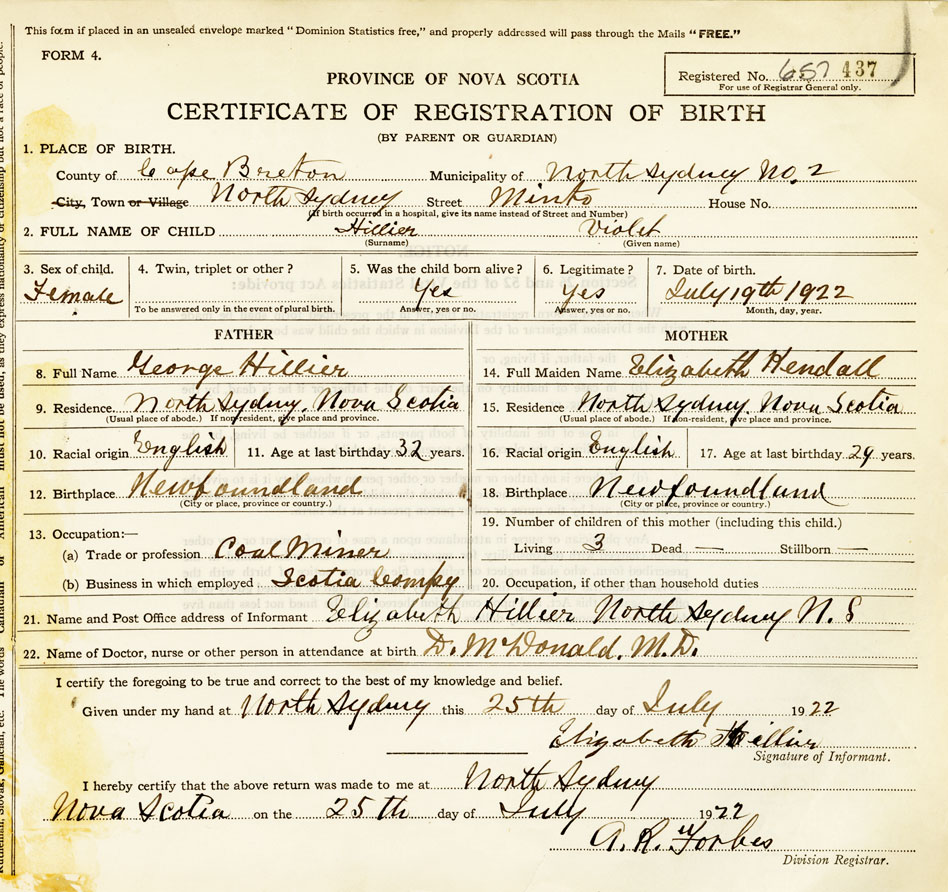 This form if placed in an unsealed envelope marked "Dominion Statistics free," and properly addressed will pass through the Mails "FREE."
FORM 4.
Registered No. 657 437
For use of Registrar General only.
PROVINCE OF NOVA SCOTIA
CERTIFICATE OF REGISTRATION OF BIRTH
(BY PARENT OR GUARDIAN)
1. PLACE OF BIRTH.
County of Cape Breton Municipality of North Sydney No. 2
City, Town or Village North Sydney Street Minto House No.
(If birth occurred in a hospital, give its name instead of Street and Number)
2. FULL NAME OF CHILD Hillier Violet
(Surname) (Given name)
3. Sex of child. 4. Twin, triplet or other? 5. Was the child born alive? 6. Legitimate? 7. Date of birth.
Female Yes Yes July 19th 1922
To be answered only in the event of plural birth. Answer, yes or no. Answer, yes or no. Month, day, year.
FATHER MOTHER
8. Full Name George Hillier 14. Full Maiden Name Elizabeth Kendall
9. Residence North Sydney, Nova Scotia 15. Residence North Sydney, Nova Scotia
(Usual place of abode.) If non-resident, give place and province. (Usual place of abode.) If non-resident, give place and province.
10. Racial origin English 11. Age at last birthday 32 years. 16. Racial origin English 17. Age at last birthday 29 years.
12. Birthplace Newfoundland 18. Birthplace Newfoundland
(City or place, province or country.) (City or place, province or country.)
13. Occupation:— 19. Number of children of this mother (including this child.)
(a) Trade or profession Coal Miner Living 3 Dead — Stillborn —
(b) Business in which employed Scotia Compy 20. Occupation, if other than household duties
21. Name and Post Office address of Informant Elizabeth Hillier North Sydney N. S
22. Name of Doctor, nurse or other person in attendance at birth D. McDonald, M.D.
I certify the foregoing to be true and correct to the best of my knowledge and belief.
Given under my hand at North Sydney this 25th day of July 1922
Elizabeth Hillier
Signature of Informant.
I hereby certify that the above return was made to me at North Sydney
Nova Scotia on the 25th day of July 1922
A. R. Forbes
Division Registrar.